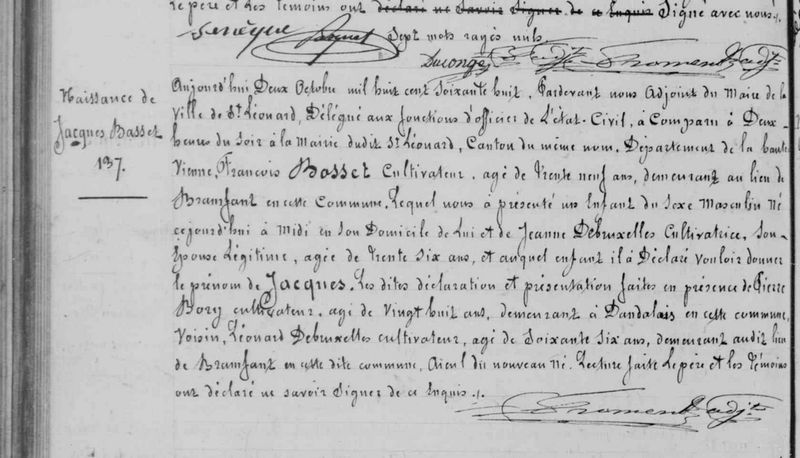 le père et les témoins ont déclaré ne savoir signer de ce Enquis Signé avec nous
Sept mots rayés nuls.
Naissance de
Jacques Basset
137.
Aujourd'hui Deux Octobre mil huit cent Soixante huit, Pardevant nous Adjoint du Maire de la
Ville de St Léonard, Délégué aux fonctions d'officier de L'état-Civil, à Comparu à Deux
heures du Soir à la Mairie dudit St Léonard, Canton du même nom, Département de la haute
Vienne, François Basset Cultivateur, agé de Trente neuf ans, demeurant au lieu de
Bramfant en cette Commune, Lequel nous à présenté un Enfant du Sexe Masculin Né
cejourd'hui à Midi en Son Domicile de Lui et de Jeanne Debruxelles Cultivatrice, Son
Epouse Légitime, agée de Trente Six ans, et auquel enfant il à Déclaré vouloir donner
le prénom de Jacques. Les dites déclaration et présentation faites en présence de Pierre
Bory cultivateur, agé de Vingt huit ans, demeurant à Dandalais en cette commune,
Voisin, Léonard Debruxelles cultivateur, agé de Soixante Six ans, demeurant audit lieu
de Bramfant en cette dite commune, Aieul du nouveau Né. Lecture faite Le père et les Témoins
ont déclaré ne savoir Signer de ce Enquis.